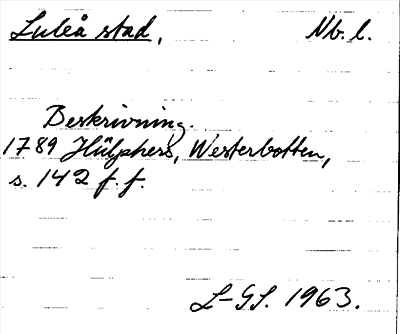 Luleå stad, Nb. l.
Beskrivning.
1789 Hülphers, Westerbotten,
s. 142 f. f.
L-GS. 1963.